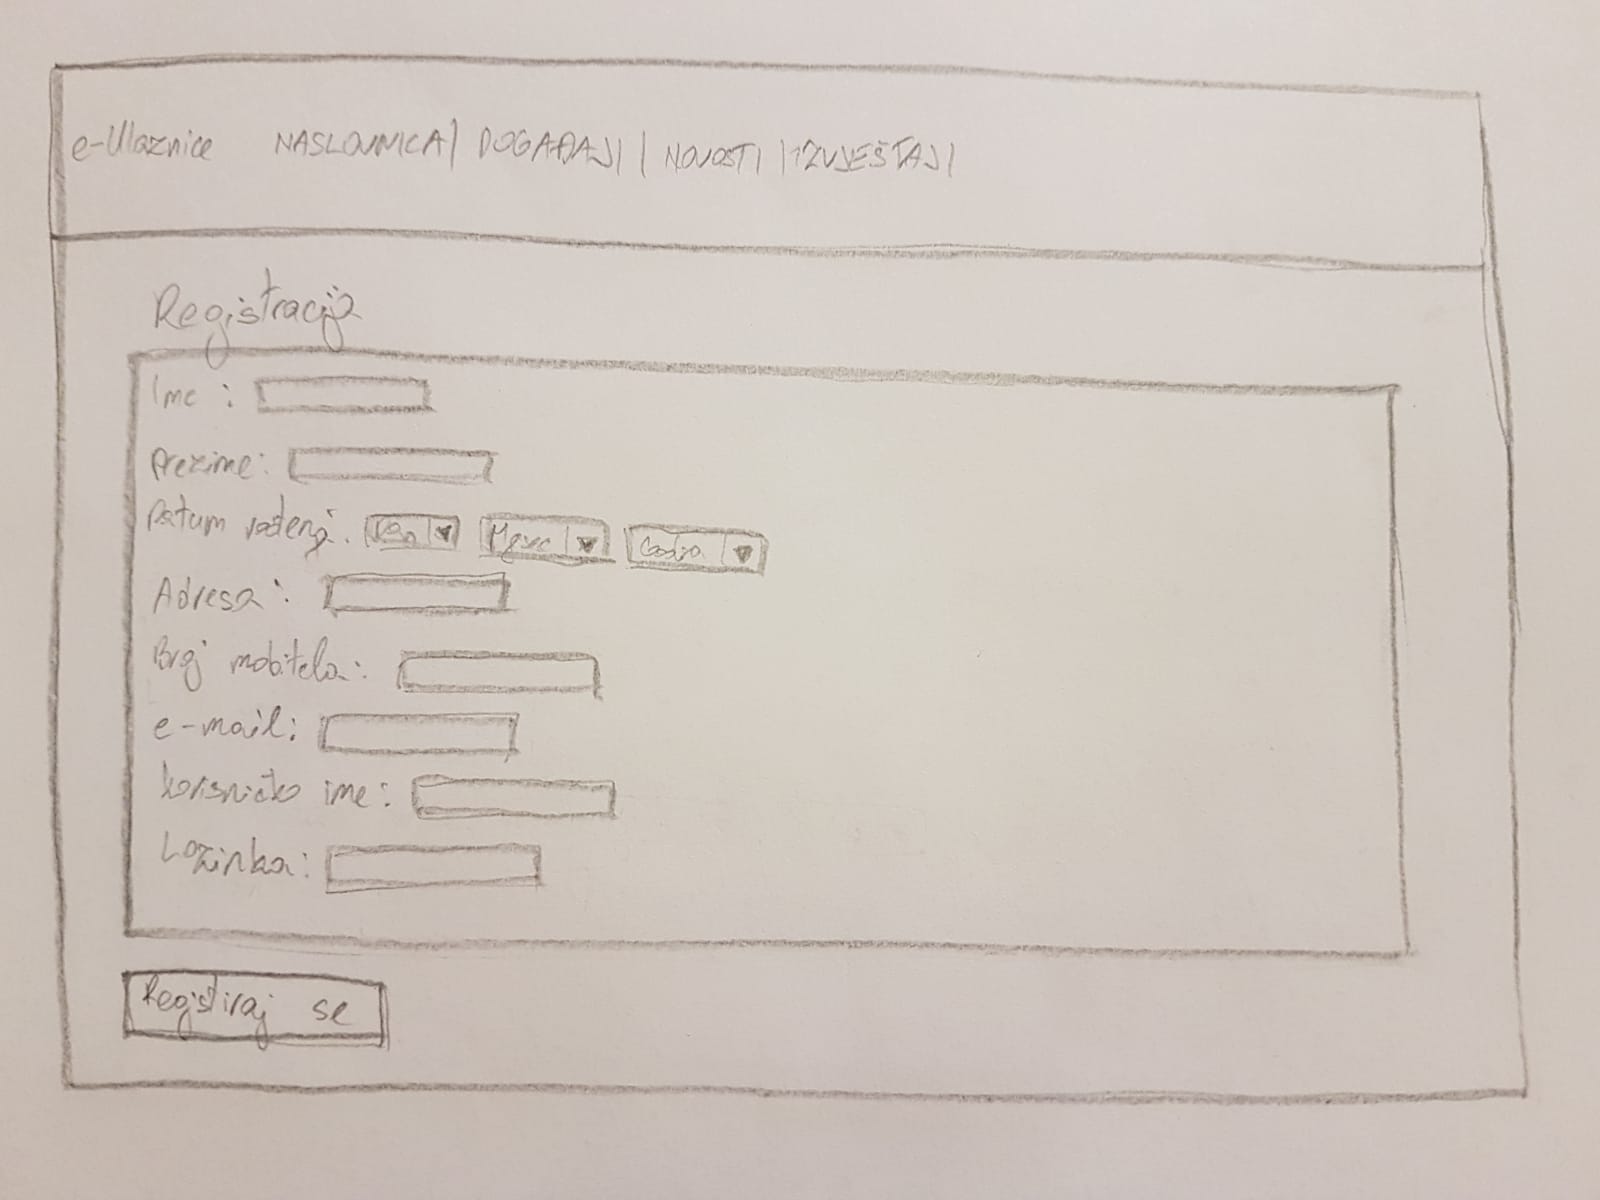 e-Ulaznice NASLOVNICA | DOGAĐAJI | NOVOSTI | IZVJEŠTAJI
Registracija
Ime :
Prezime:
Datum rođenja. Dan Mjesec Godina
Adresa:
Broj mobitela:
e-mail:
korisničko ime:
Lozinka:
Registriraj se